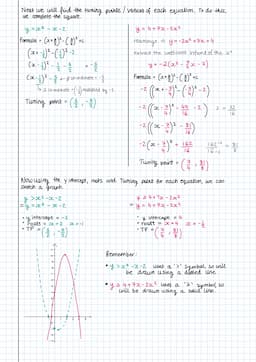 Next we will find the turning points / vertices of each equation. To do this,
we complete the square.
y = x² - x - 2
Formula = (x + b/2)² - (b/2)² + c
(x - 1/2)² - (1/2)² - 2
(x - 1/2)² - 1/4 - 8/4
(x - 1/2)² - 9/4
Turning point = (1/2, -9/4)
y = 4 + 7x - 2x²
rearrange → y = -2x² + 7x + 4
extract the coefficient infront of the x²
y = -2(x² - 7/2x - 2)
Formula = (x + b/2)² - (b/2)² + c
-2((x - 7/4)² - 49/16 - 2)
2 = 32/16
-2((x - 7/4)² - 81/16)
-2(x - 7/4)² + 162/16
Turning point = (7/4, 81/8)
Now using the y intercept, roots and turning point for each equation, we can
sketch a graph.
y > x² - x - 2
y = x² - x - 2
• y intercept = -2
• roots = x = 2 x = -1
• TP = (1/2, -9/4)
y ≤ 4 + 7x - 2x²
y = 4 + 7x - 2x²
• y intercept = 4
• roots = x = 4 x = -1/2
• TP = (7/4, 81/8)
Remember:
• y > x² - x - 2 uses a '>' symbol, so will
be drawn using a dotted line.
• y ≤ 4 + 7x - 2x² uses a "≥" symbol so
will be drawn using a solid line.